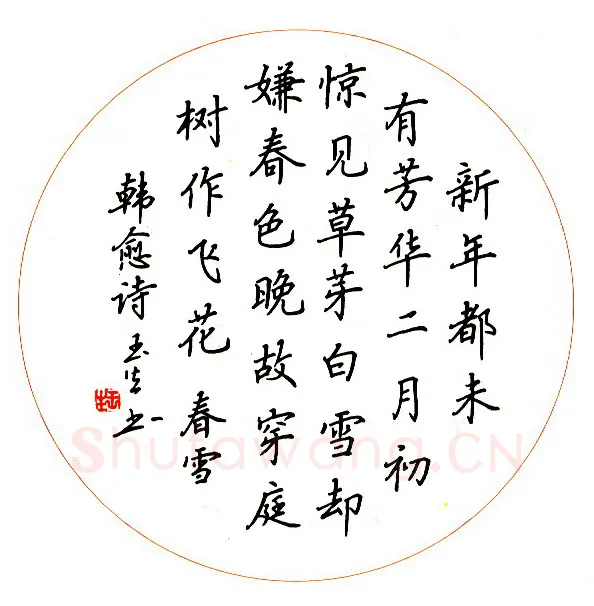 新年都未
有芳华二月初
惊见草芽白雪却
嫌春色晚故穿庭
树作飞花 春雪
韩愈诗 玉生书
Shufawang.CN